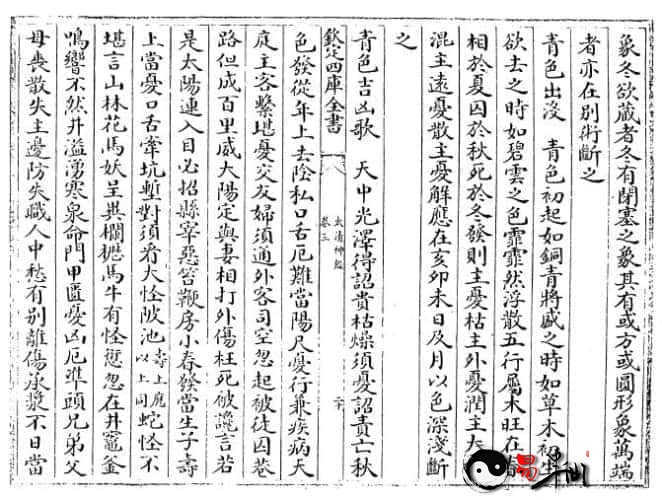 象冬欲藏者冬有閉塞之象其有或方或圓形象萬端
者亦在別術斷之
青色出沒　青色初起如銅青將盛之時如草木初
欲去之時如碧雲之色霏霏然浮散五行屬木旺在
相於夏囚於秋死於冬發則主憂枯主外憂潤主
混主遠憂散主憂解應在亥卯未日及月以色深淺斷
之
欽定四庫全書
太清神鑑
卷三
青色吉凶歌　天中光澤得詔貴枯燥須憂詔責亡秋
色發從年上去陰私口舌厄難當陽尺憂行兼疾病天
庭主客繫堪憂交友婦須通外客司空忽起被徒囚巷
路但成百里威大陽定與妻相打外傷枉死被讒言若
是太陽連入目必招縣宰惡笞鞭房小春發當生子壽
上當憂口舌牽坑塹對須看大怪陂池壽上龐以上同蛇怪不
堪言山林花馬妖呈異欄櫪馬牛有怪愆忽在井竈釜
鳴響不然井溢湧寒泉命門甲匱憂凶厄準頭兄弟父
母喪散失主邊防失職人中愁有別離傷承漿不日當